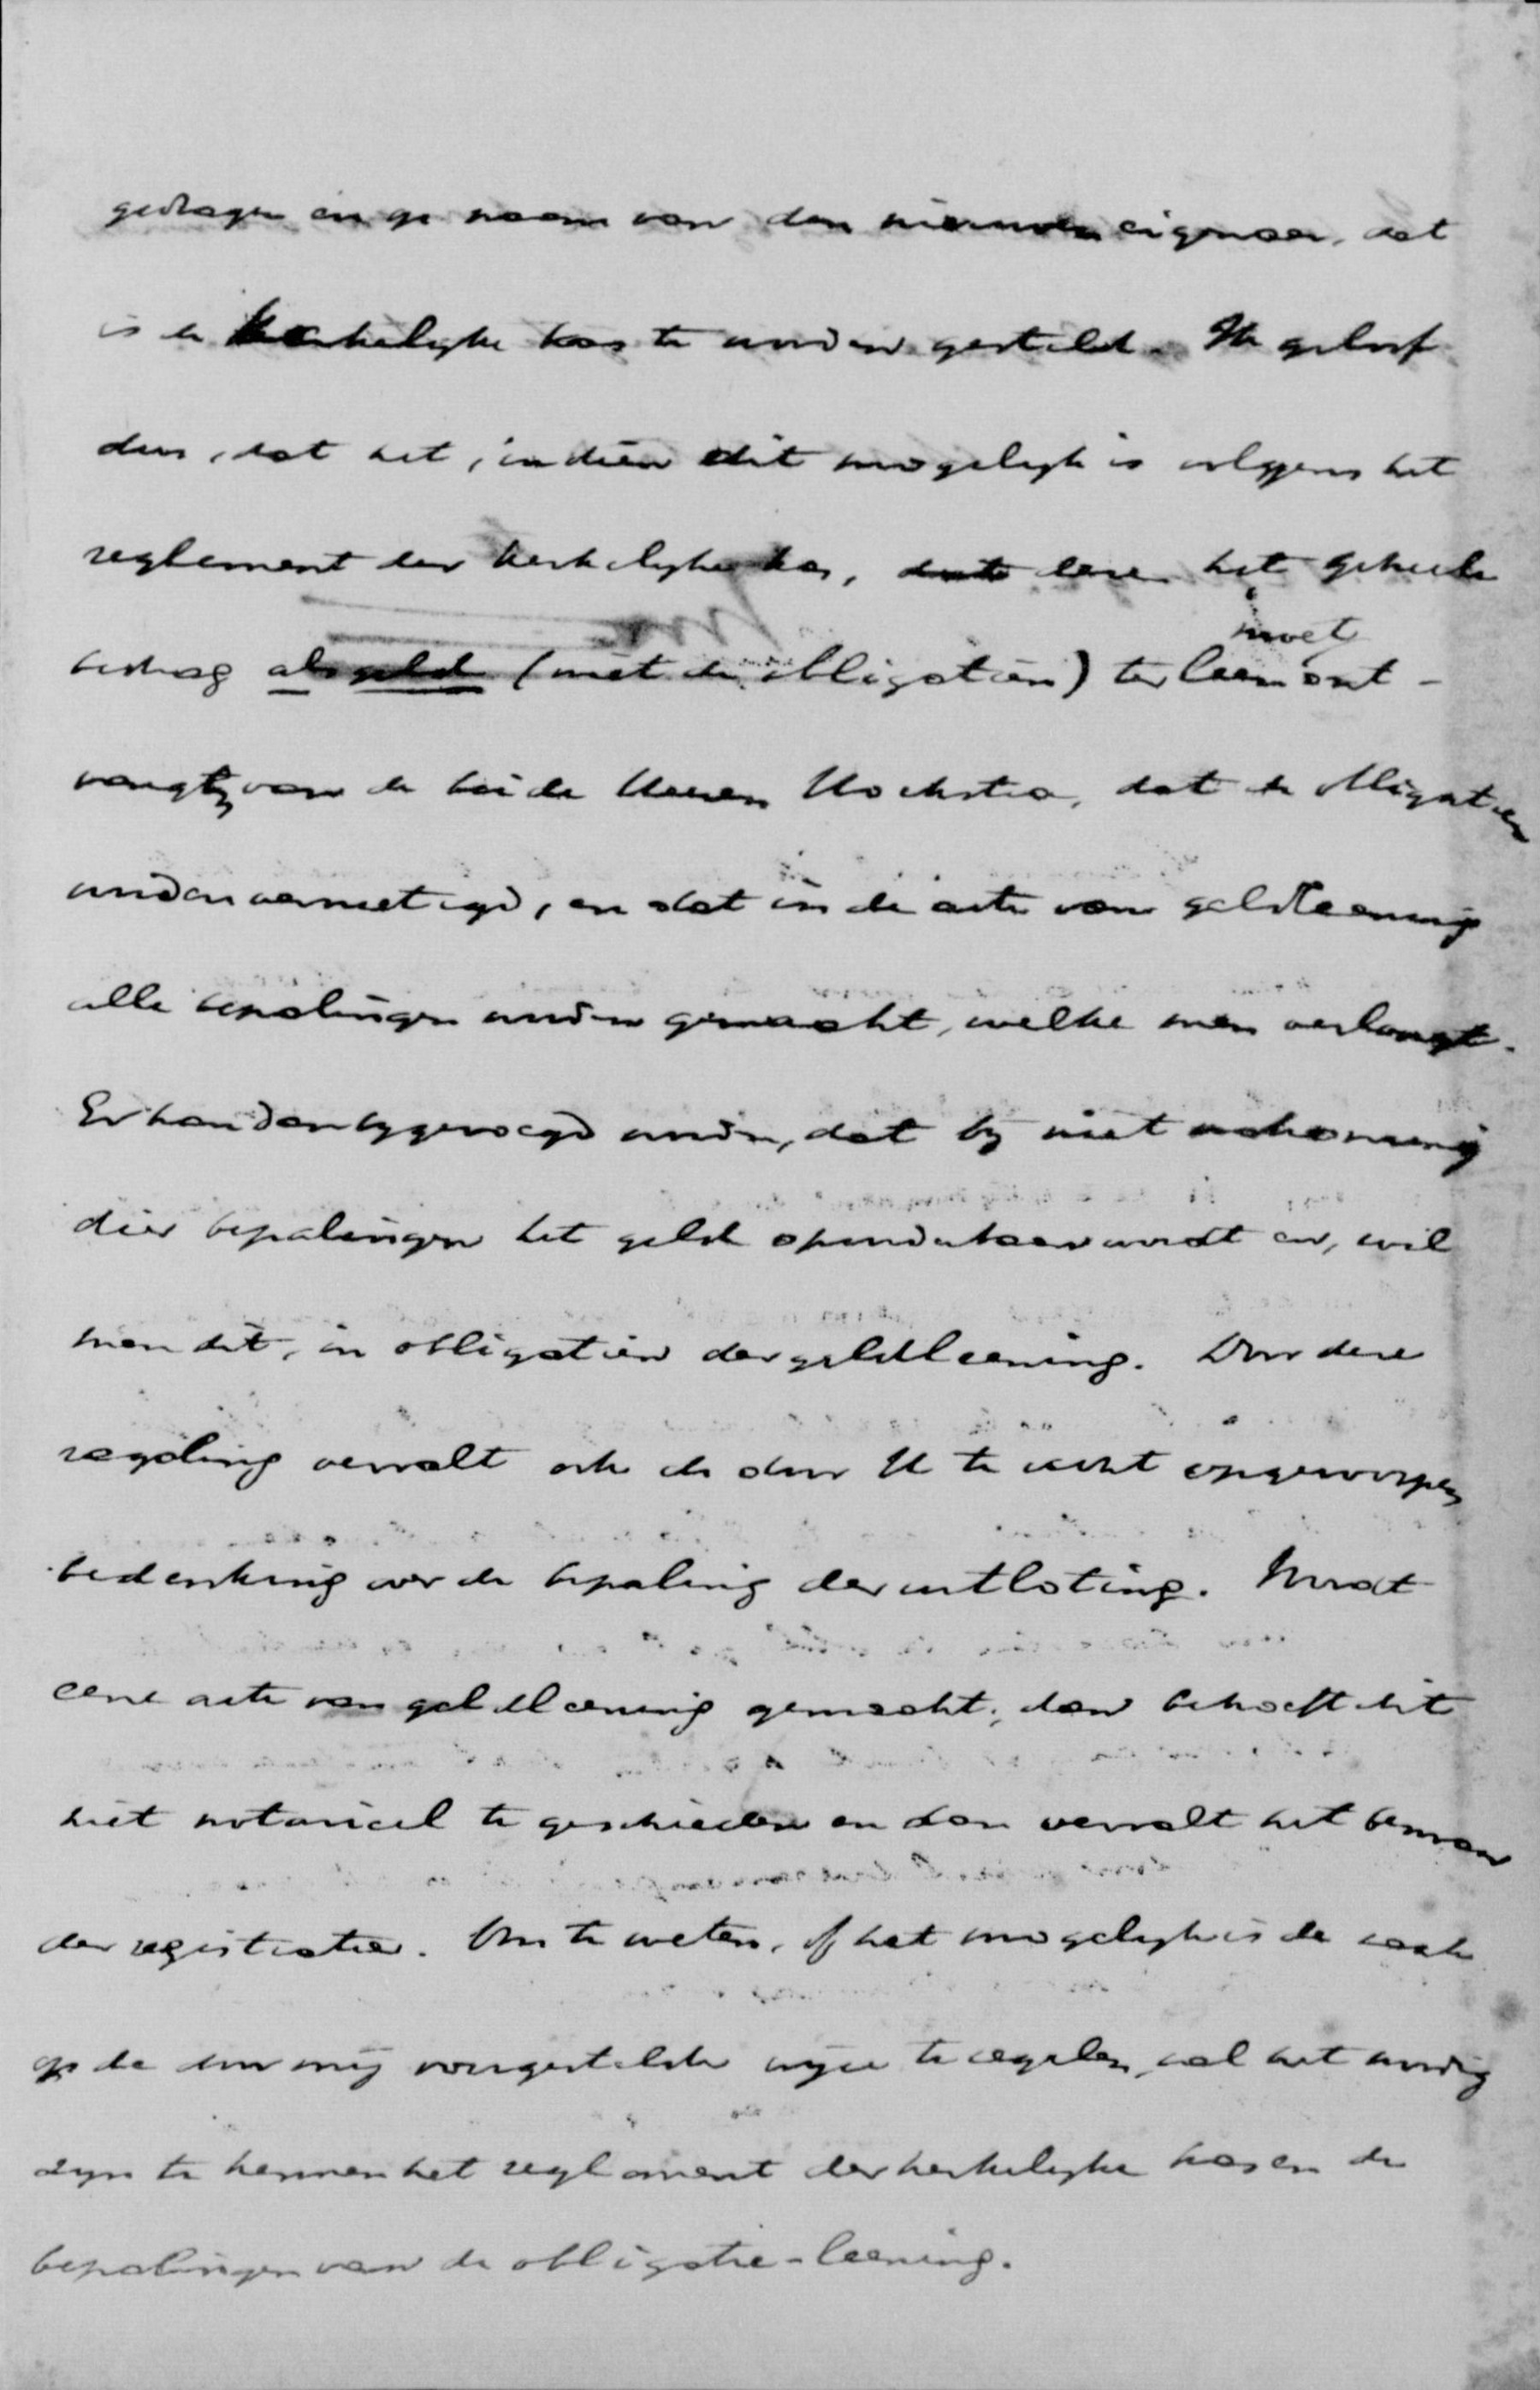 gedragen en op naam van den nieuwen eigenaar, dat
is de kerkelyke kas te worden gesteld. Ik geloof
dus, dat het, indien dit mogelyk is volgens het
reglement der kerkelyke kas, deze het geheele
moet
bedrag als geld (niet de obligatiën) ter leen ont-
vangt van de beide Heeren Hoekstra, dat de obligatien
worden vernietigd, en dat in de acte van geldleening
alle bepalingen worden gemaakt, welke men verlangt.
Er kan dan bygevoegd worden, dat by niet nakoming
dier bepalingen het geld opvorderbaar wordt en, wil
men dit, in obligatiën der geldleening. Door deze
regeling vervalt ook de door U te recht opgeworpen
bedenking over de bepaling der uitloting. Wordt
eene acte van geldleening gemaakt, dan behoeft dit
niet notarieel te geschieden en dan vervalt het bezwaar
der registratie. Om te weten, of het mogelyk is de zaak
op de door mij voorgestelde wyze te regelen, zal het noodig
zyn te kennen het reglement der kerkelyke kas en de
bepalingen van de obligatie-leening.